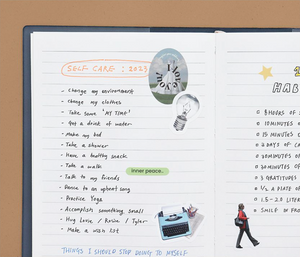 SELF CARE : 2023
- change my environment
- change my clothes
- Take some 'MY TIME'
- Get a drink of water
- Make my bed
- Take a shower
- Have a healthy snack
- Take a walk
- Talk to my friends
- Dance to an upbeat song
- Practice Yoga
- Accomplish something small
- Hug Love / / Tyler
- Make a wish list
THINGS I SHOULD STOP DOING TO MYSELF
inner peace..
2
HAB
8 HOURS OF
10 MINUTES O
15 MINUTES
2 DAYS OF CA
30 MINUTES
20 MINUTES
3 GRATITUDES
1/2 A PLATE OF
1.5 - 2.0 LITER
SMILE IN FRO